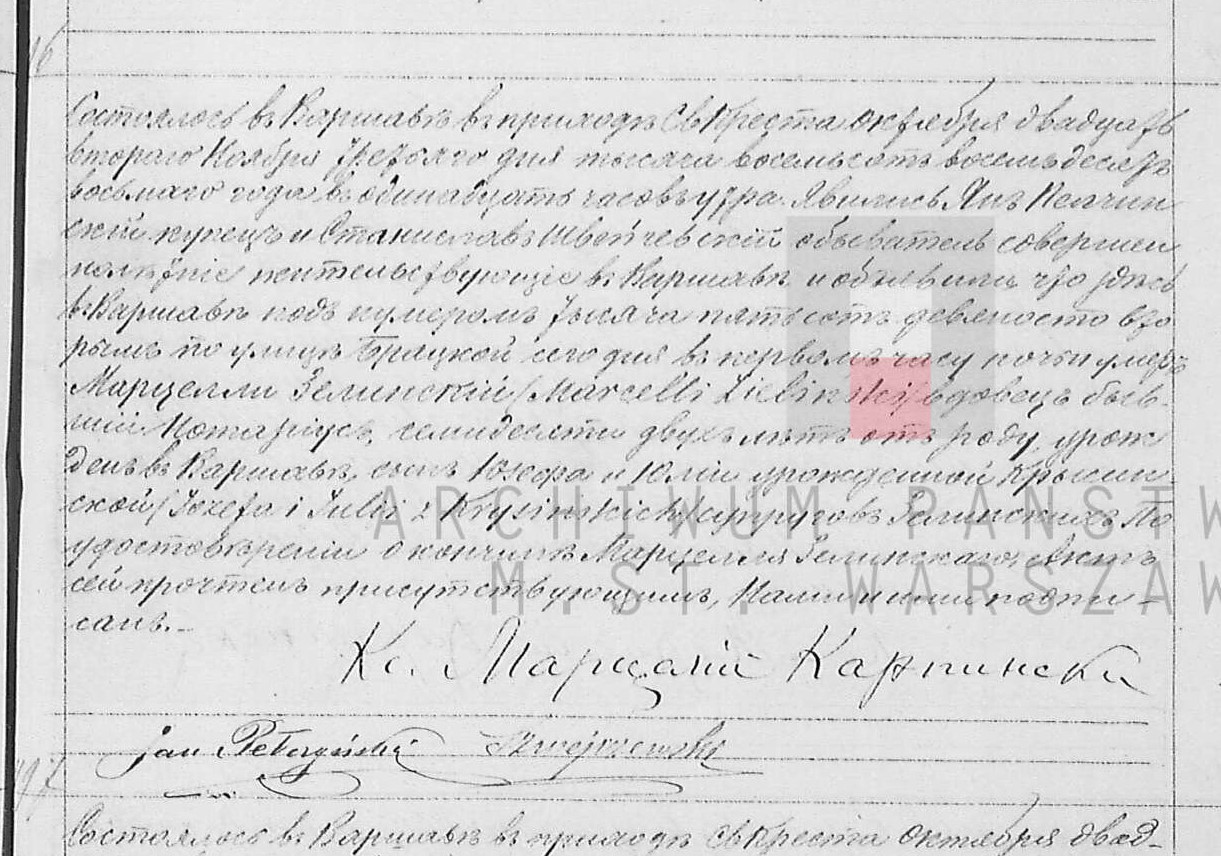 96
Состоялось въ Варшавѣ въ приходѣ Св Креста Октября двадцать
втораго Ноября третьяго дня тысяча восемьсотъ восемьдесятъ
восьмаго года въ одинадцать часовъ утра. Явились Янъ Пелчин
скій купецъ и Станиславъ Швейчевскій обыватель совершен
нолѣтніе жительствующіе въ Варшавѣ и объявили что здѣсь
въ Варшавѣ подъ нумеромъ тысяча пятьсотъ девяносто вто
рымъ по улицѣ Брацкой сего дня въ первомъ часу ночи умеръ
Марцелли Зелинскій /Marcelli Zielinski/ вдовецъ быв-
шій Нотаріусъ, семидесяти двухъ лѣтъ отъ роду, урож
денъ въ Варшавѣ, сынъ Юзефа и Юліи урожденной Крысин
ской /Józefa i Julii z Krysińskich/ супруговъ Зелинскихъ По
удостовѣреніи о кончинѣ Марцеллія Зелинскаго, Актъ
сей прочтенъ присутствующимъ, Нами и ими подпи-
санъ.-
Кс. Марцелій Карпински
Jan Pełczyński
97
Состоялось въ Варшавѣ въ приходѣ Св Креста Октября двад-
ARCHIWUM PAŃSTW
M.ST. WARSZAW